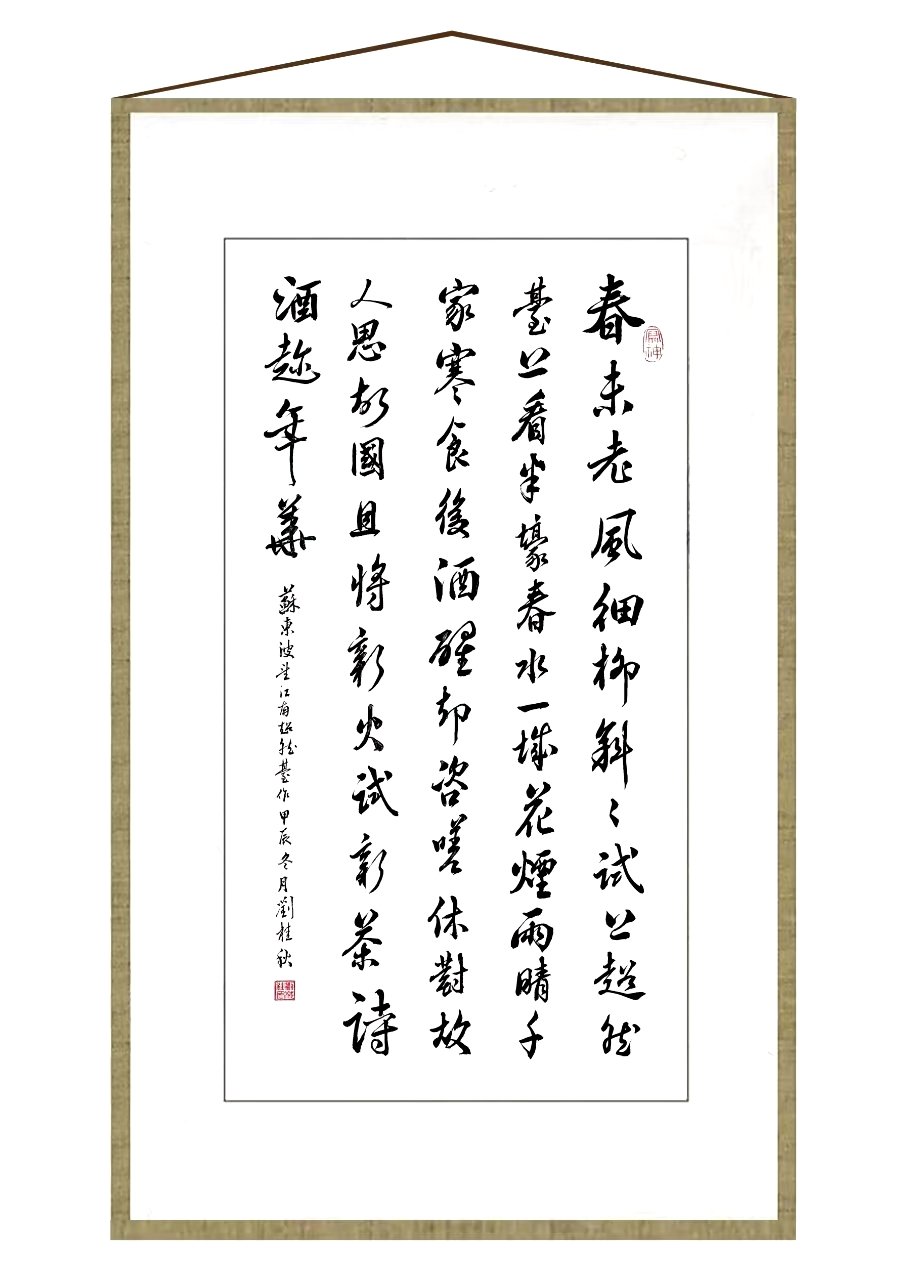 春未老風細柳斜〻試上超然
臺上看半壕春水一城花煙雨晴千
家寒食後酒醒却咨嗟休對故
人思故國且將新火試新茶詩
酒趂年華
蘇東坡望江南超然臺作甲辰冬月劉桂秋